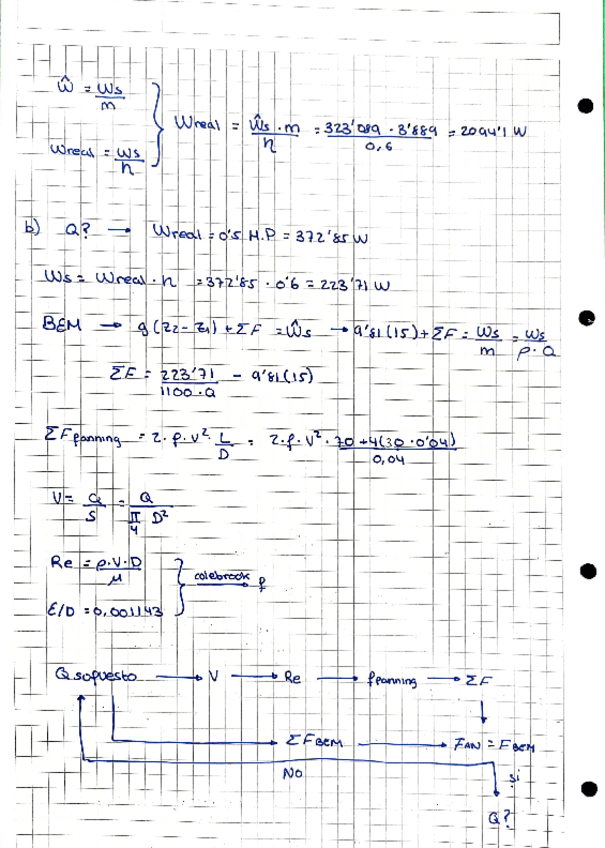 Ŵ = Ws/m
Wreal = Ws/η
Wreal = Ŵs·m/η = 323'089 · 3'889/0,6 = 2094'1 W
b) Q? → Wreal = 0'5 H.P = 372'85 W
Ws = Wreal · η = 372'85 · 0'6 = 223'71 W
BEM → g(z2 - z1) + ΣF = Ŵs → 9'81(15) + ΣF = Ws/m = Ws/ρ·Q
ΣF = 223'71/1100·Q - 9'81(15)
ΣFfanning = 2·f·v²·L/D = 2·f·v²· 70+4(30·0'04)/0,04
V = Q/S = Q/(π/4 D²)
Re = ρ·V·D/μ
colebrook → f
E/D = 0,001143
Qsopuesto → V → Re → ffanning → ΣF
ΣFBEM → FAN = FBEM
NO
si
Q?